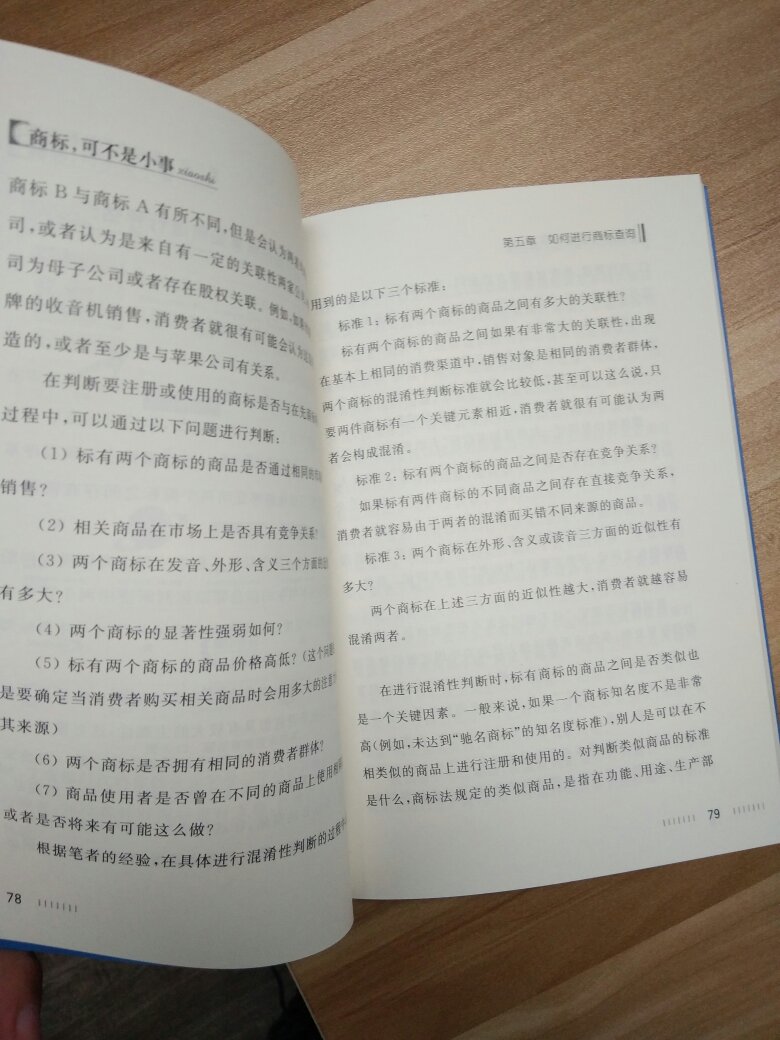 商标,可不是小事 xiaoshi
商标 B 与商标 A 有所不同,但是会认为两者
司,或者认为是来自有一定的关联性两家公
司为母子公司或者存在股权关联。例如,如果
牌的收音机销售,消费者就很有可能会认为
造的,或者至少是与苹果公司有关系。
在判断要注册或使用的商标是否与在先商标
过程中,可以通过以下问题进行判断:
(1) 标有两个商标的商品是否通过相同的
销售?
(2) 相关商品在市场上是否具有竞争关系?
(3) 两个商标在发音、外形、含义三个方面的
有多大?
(4) 两个商标的显著性强弱如何?
(5) 标有两个商标的商品价格高低?(这个问题
是要确定当消费者购买相关商品时会用多大的注意
其来源)
(6) 两个商标是否拥有相同的消费者群体?
(7) 商品使用者是否曾在不同的商品上使用
或者是否将来有可能这么做?
根据笔者的经验,在具体进行混淆性判断的过程
78
第五章 如何进行商标查询
用到的是以下三个标准:
标准 1:标有两个商标的商品之间有多大的关联性?
标有两个商标的商品之间如果有非常大的关联性,出现
在基本上相同的消费渠道中,销售对象是相同的消费者群体,
两个商标的混淆性判断标准就会比较低,甚至可以这么说,只
要两件商标有一个关键元素相近,消费者就很有可能认为两
者会构成混淆。
标准 2:标有两个商标的商品之间是否存在竞争关系?
如果标有两件商标的不同商品之间存在直接竞争关系,
消费者就容易由于两者的混淆而买错不同来源的商品。
标准 3:两个商标在外形、含义或读音三方面的近似性有
多大?
两个商标在上述三方面的近似性越大,消费者就越容易
混淆两者。
在进行混淆性判断时,标有商标的商品之间是否类似也
是一个关键因素。一般来说,如果一个商标知名度不是非常
高(例如,未达到“驰名商标”的知名度标准),别人是可以在不
相类似的商品上进行注册和使用的。对判断类似商品的标准
是什么,商标法规定的类似商品,是指在功能、用途、生产部
79